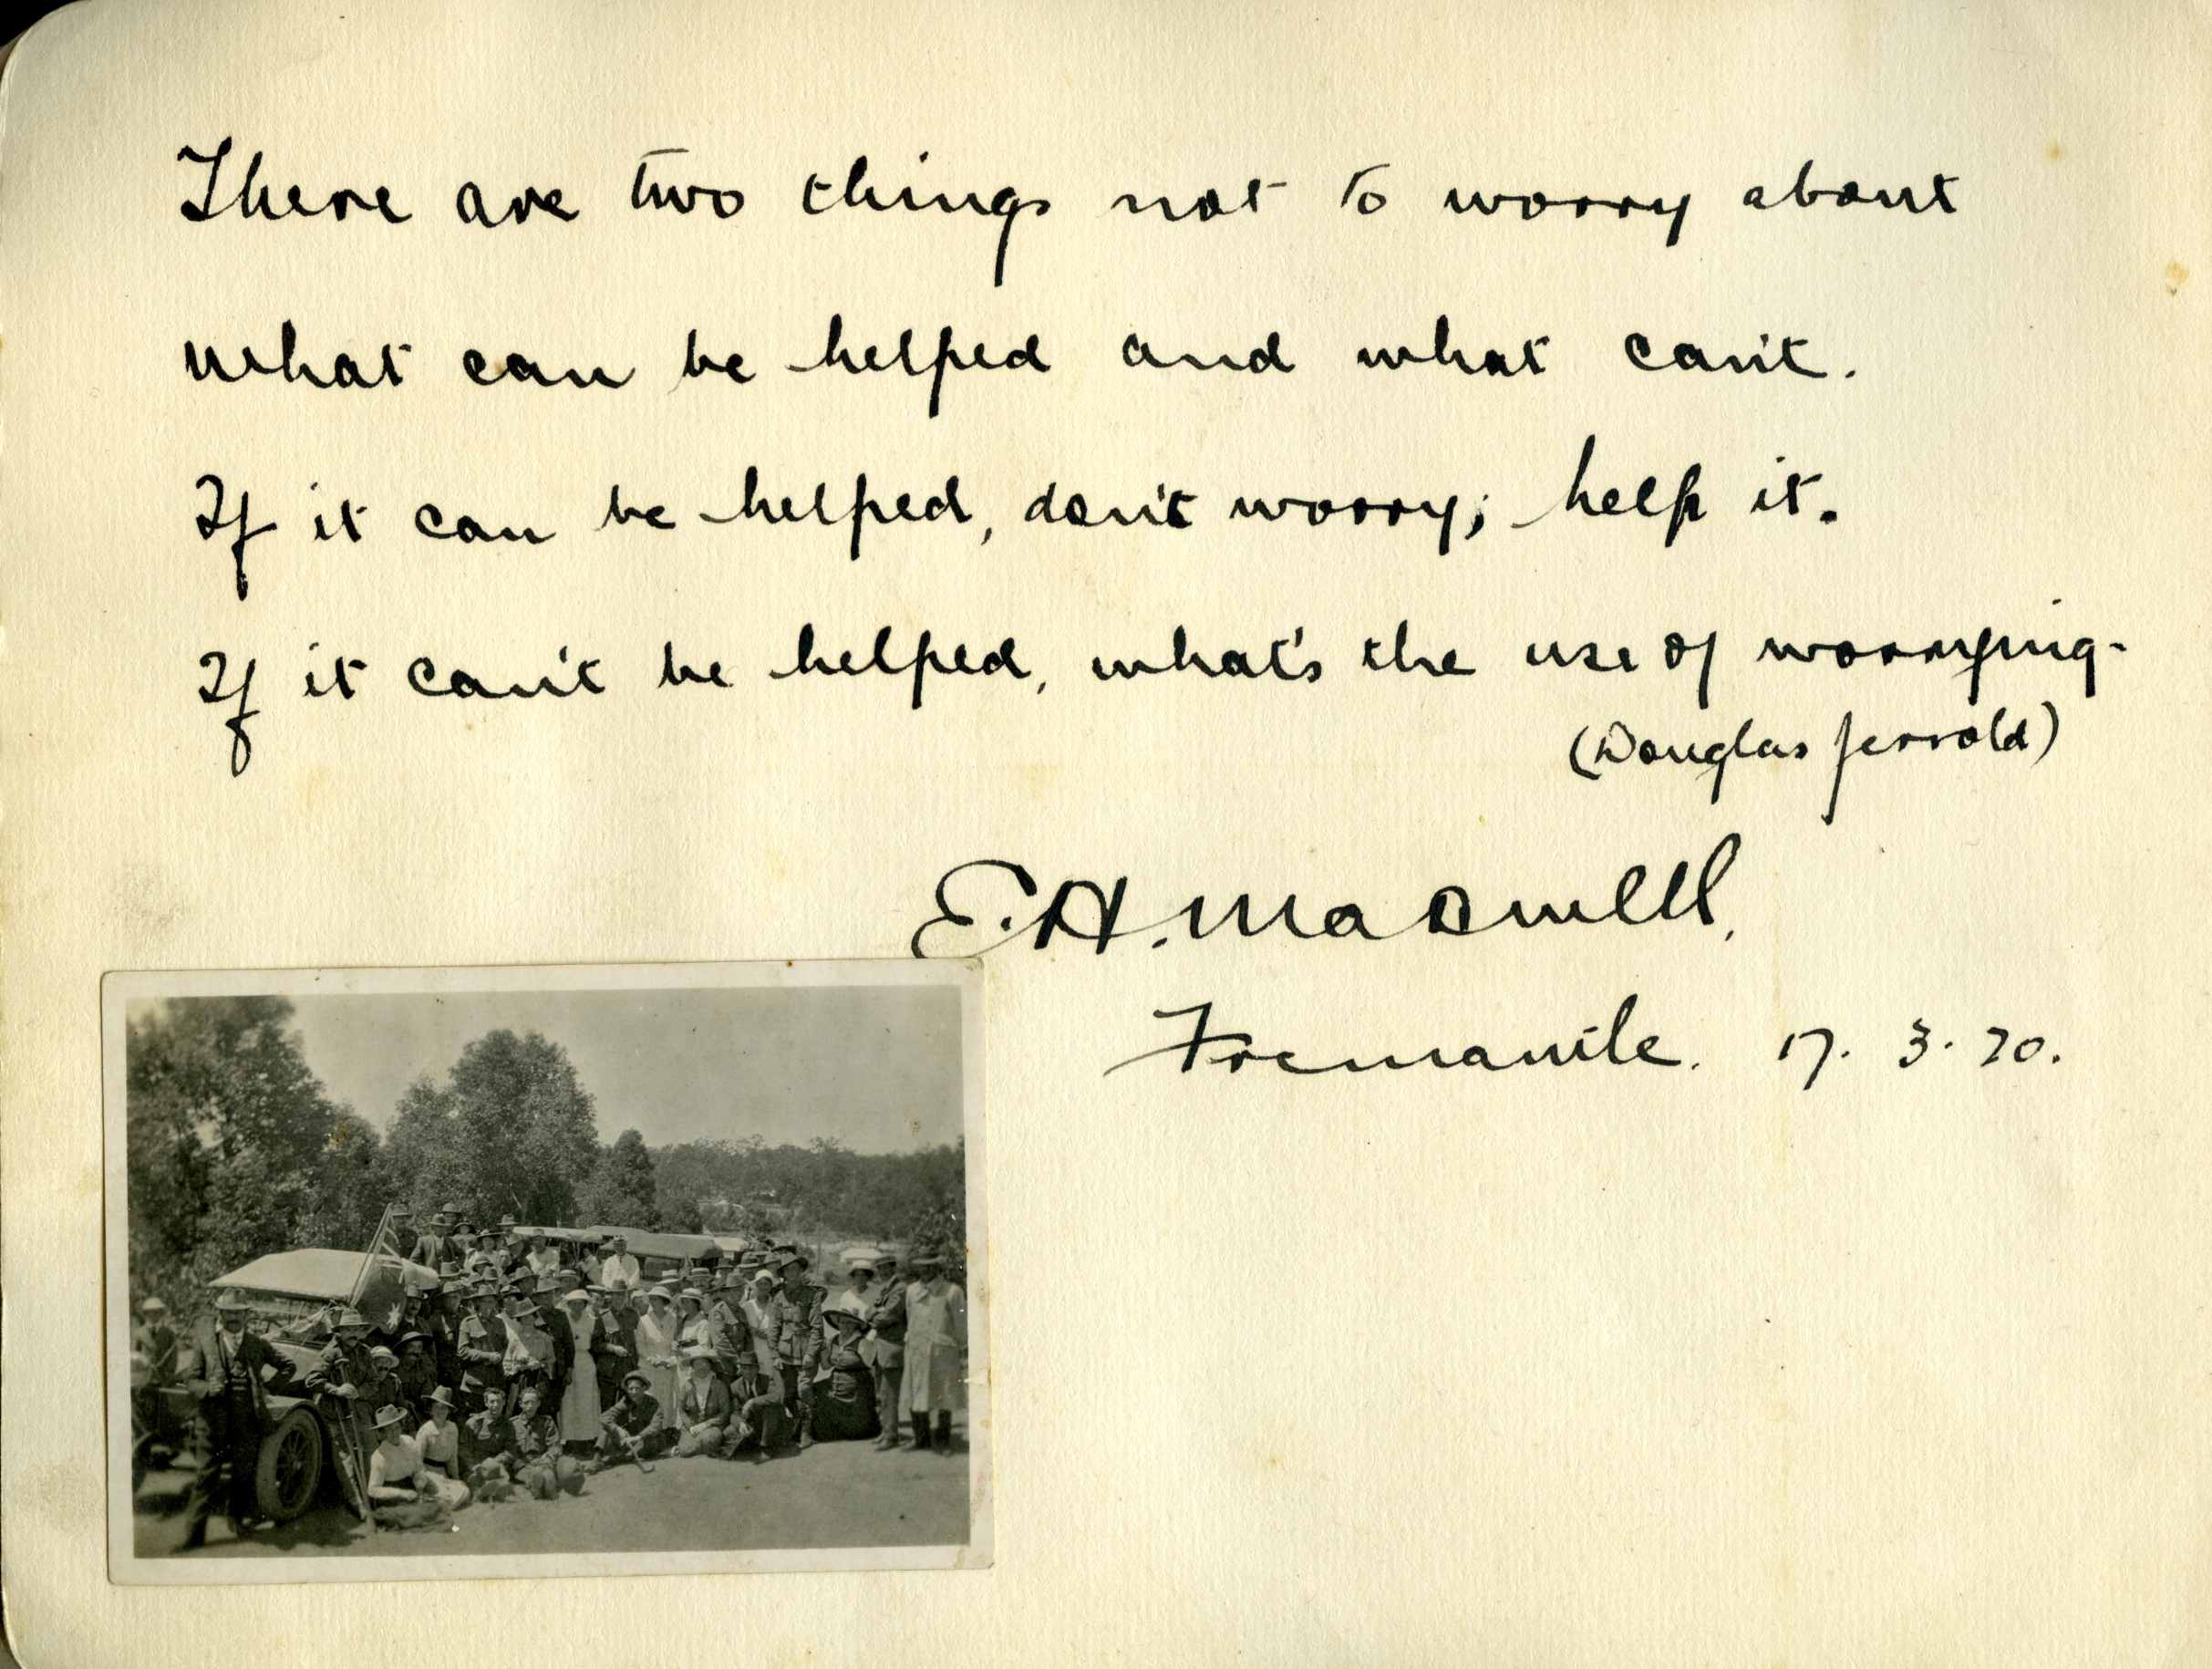 There are two things not to worry about
what can be helped and what can't.
If it can be helped, don't worry; help it.
If it can't be helped, what's the use of worrying.
(Douglas Jerrold)
E.H. Maxwell.
Fremantle. 17. 3. 20.